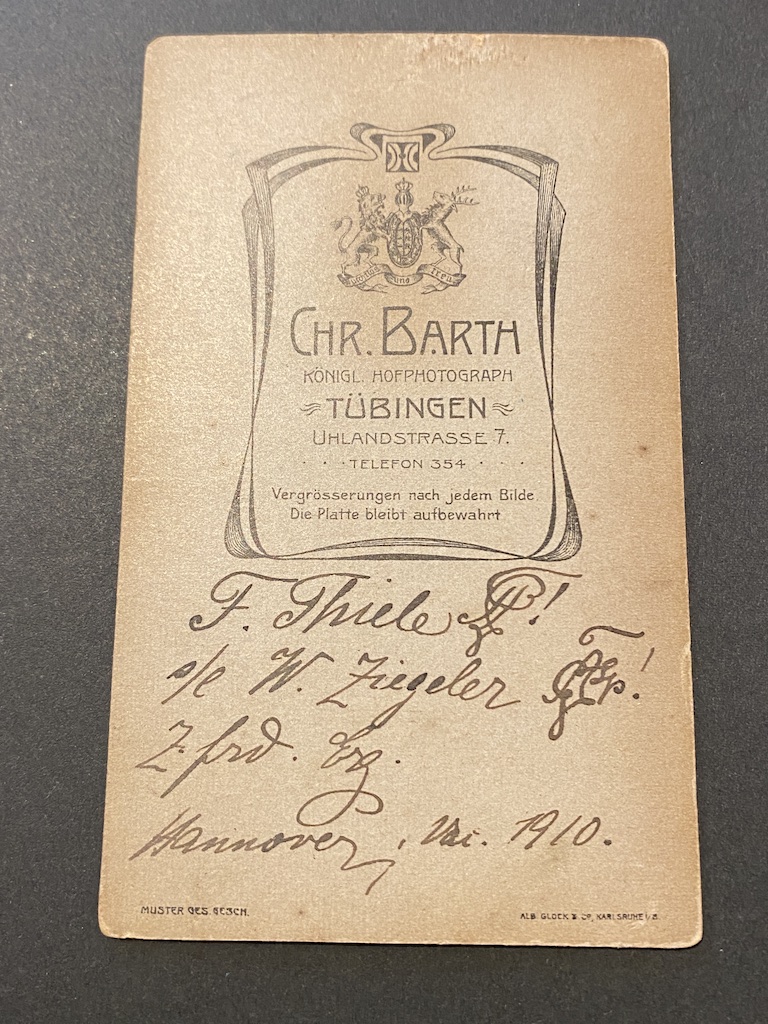 furchtlos und treu
CHR. BARTH
KÖNIGL. HOFPHOTOGRAPH
TÜBINGEN
UHLANDSTRASSE 7.
TELEFON 354
Vergrösserungen nach jedem Bilde
Die Platte bleibt aufbewahrt
F. Thiele
s/e W. Ziegeler
Z. frd. Erg.
Hannover, 1910.
MUSTER GES. GESCH.
ALB. GLOCK & Co, KARLSRUHE i/B.